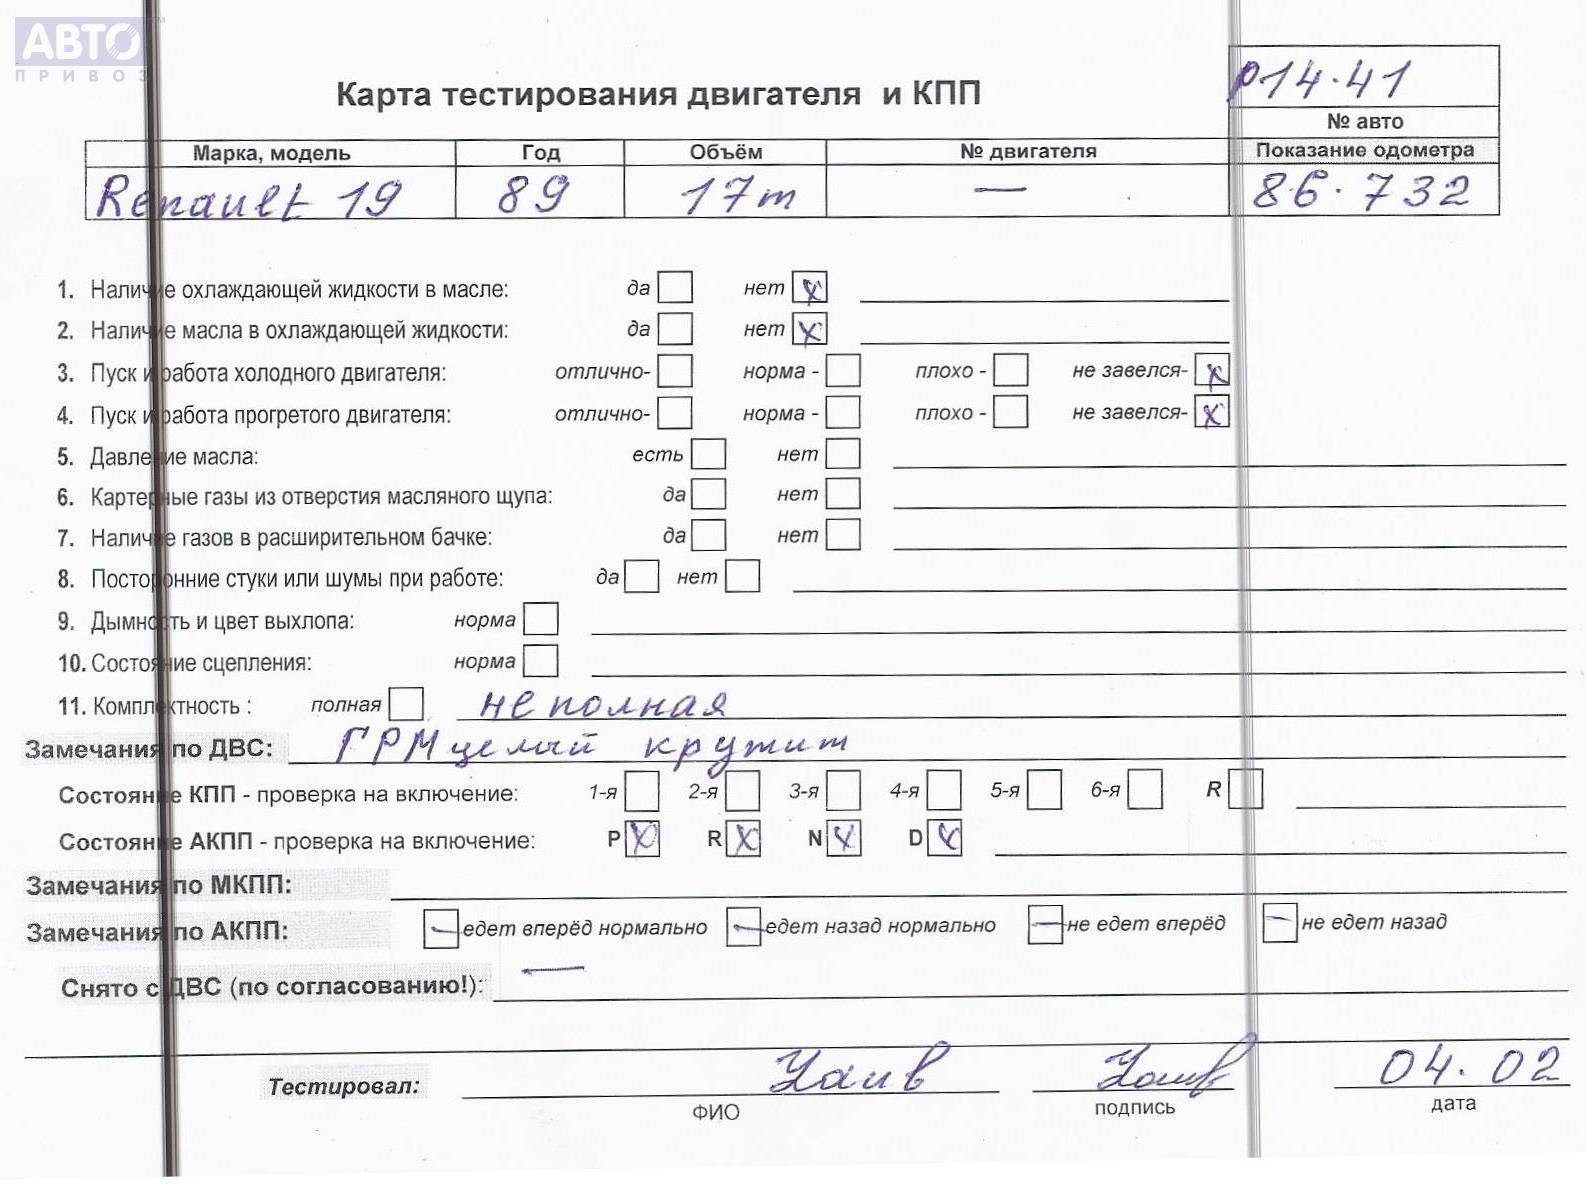 АВТО ТМ
ПРИВОЗ
Р14.41
Карта тестирования двигателя и КПП
№ авто
Марка, модель Год Объём № двигателя Показание одометра
Renault 19 89 17т — 86.732
1. Наличие охлаждающей жидкости в масле: да нет х
2. Наличие масла в охлаждающей жидкости: да нет х
3. Пуск и работа холодного двигателя: отлично- норма - плохо - не завелся- х
4. Пуск и работа прогретого двигателя: отлично- норма - плохо - не завелся- х
5. Давление масла: есть нет
6. Картерные газы из отверстия масляного щупа: да нет
7. Наличие газов в расширительном бачке: да нет
8. Посторонние стуки или шумы при работе: да нет
9. Дымность и цвет выхлопа: норма
10. Состояние сцепления: норма
11. Комплектность : полная неполная
Замечания по ДВС: ГРМ целый кружит
Состояние КПП - проверка на включение: 1-я 2-я 3-я 4-я 5-я 6-я R
Состояние АКПП - проверка на включение: P х R х N х D х
Замечания по МКПП:
Замечания по АКПП: — едет вперёд нормально — едет назад нормально — не едет вперёд — не едет назад
Снято с ДВС (по согласованию!): —
Тестировал: 04.02
ФИО подпись дата